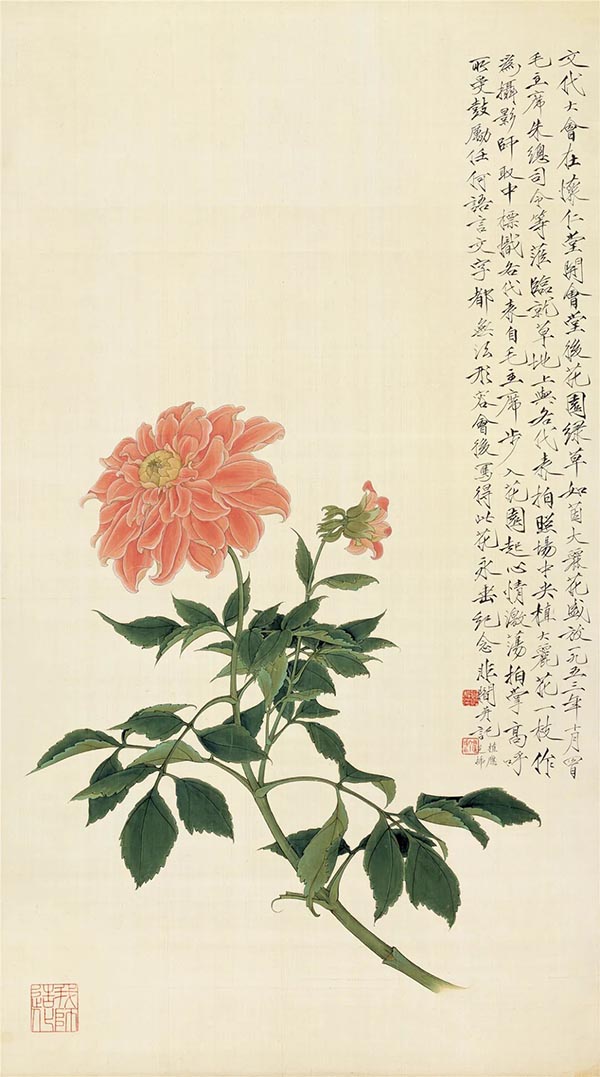 文代大會在懷仁堂開會堂後花園綠草如茵大麗花盛放一九五三年十月四日
毛主席朱總司令等蒞臨就草地上與各代表拍照場中央植大麗花一枝作
為攝影師取中標幟各代表自毛主席步入花園起心情激蕩拍掌高呼
所受鼓勵任何語言文字都無法形容會後寫得此花永垂紀念 非闇并記
我師造化